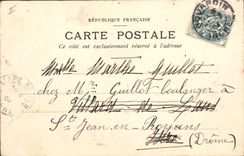 RÉPUBLIQUE FRANÇAISE
CARTE POSTALE
Ce côté est exclusivement réservé à l'adresse
Mlle Marthe Guillot
chez Mr Guillot boulanger à
St Jean en Royans
(Drôme)